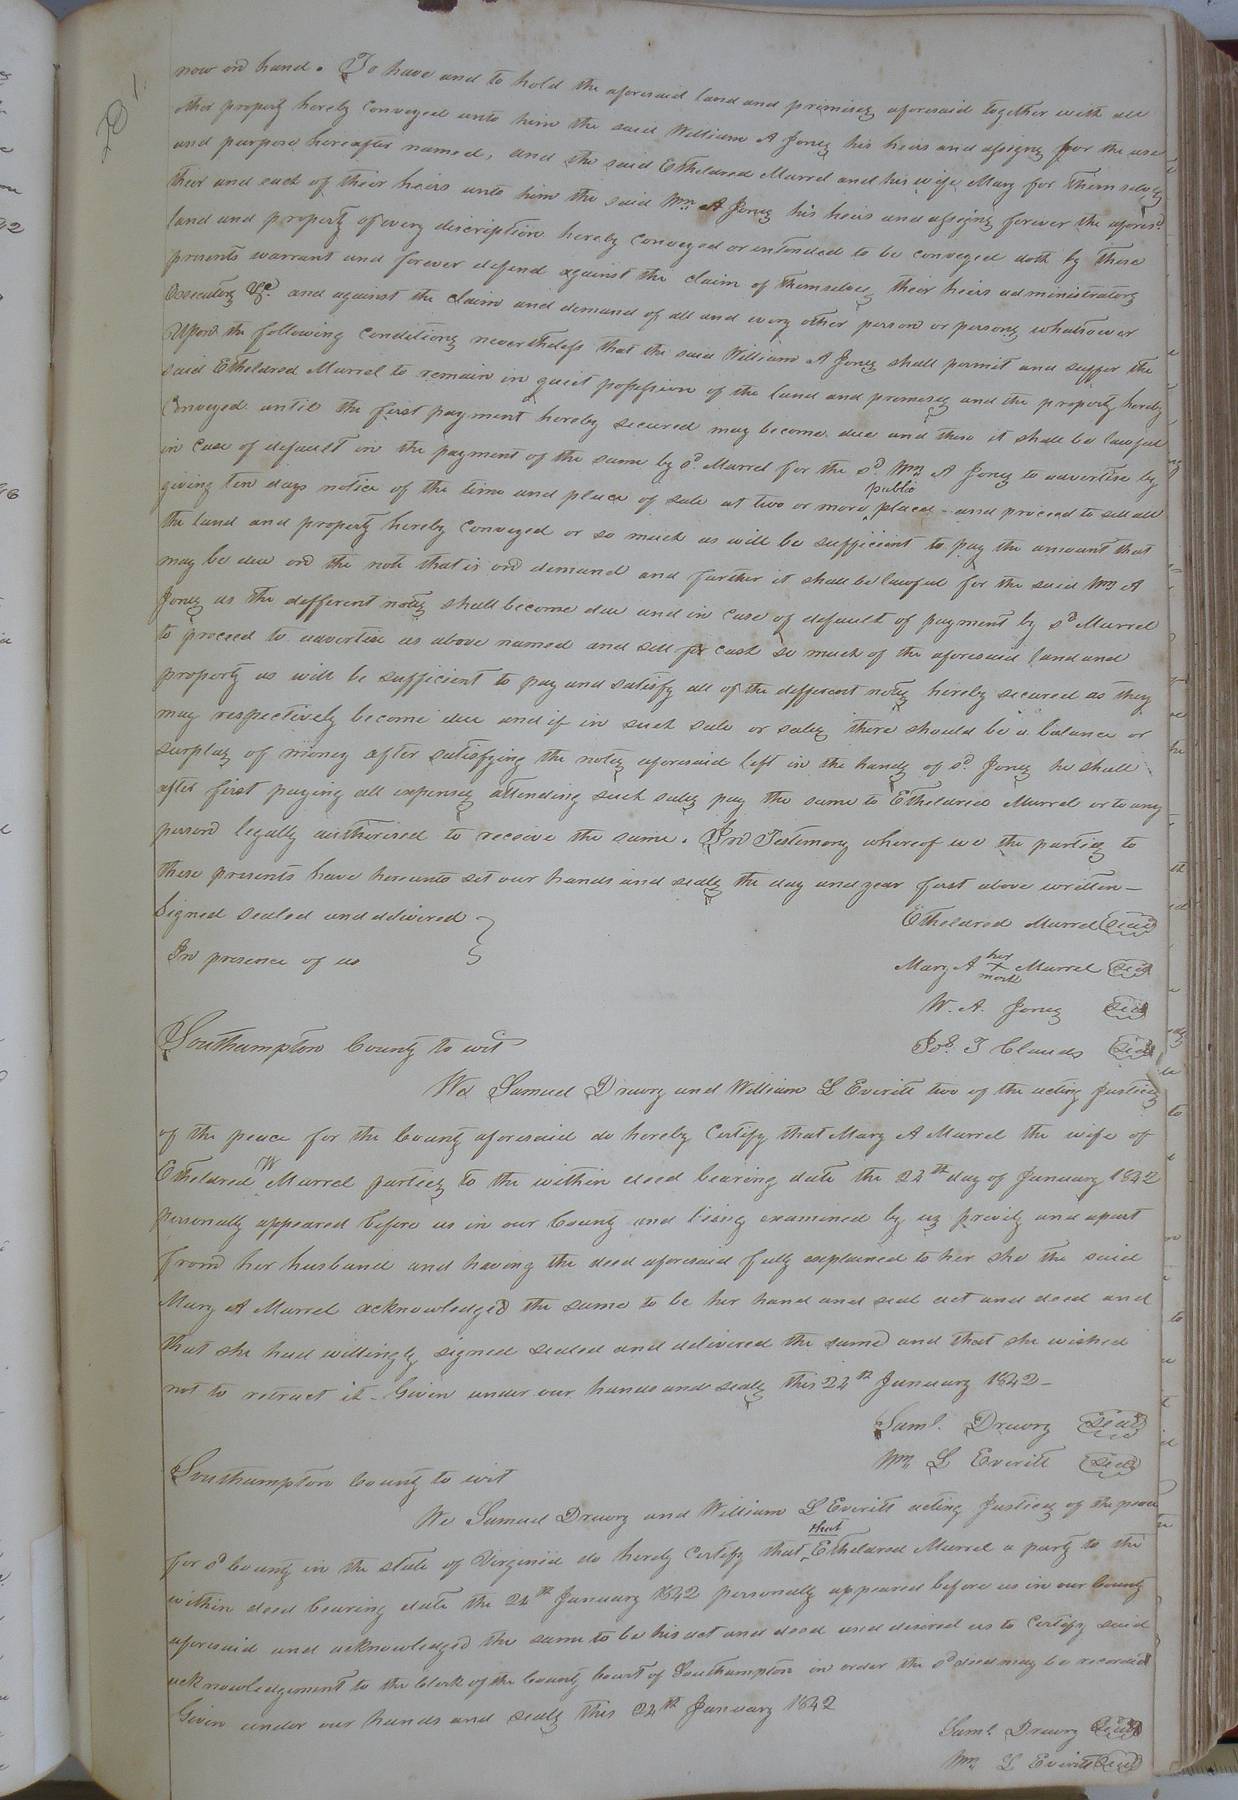 281.
now on hand. To have and to hold the aforesaid land and premises aforesaid together with all
other property hereby conveyed unto him the said William A Jones his heirs and assigns for the use
and purpose hereafter named, and the said Etheldred Murrel and his wife Mary for themselves
their and each of their heirs unto him the said Wm A Jones his heirs and assigns forever the aforesd
land and property of every discription hereby conveyed or intended to be conveyed doth by these
presents warrant and forever defend against the claim of themselves their heirs administrators
Executors &c. and against the claim and demand of all and every other person or persons whatsoever
Upon the following conditions nevertheless that the said William A Jones shall permit and suffer the
said Etheldred Murrel to remain in quiet possession of the land and premises and the property hereby
conveyed until the first payment hereby secured may become due and then it shall be lawful
in case of default in the payment of the same by sd. Murrel for the sd. Wm A Jones to advertise by
giving ten days notice of the time and place of sale at two or more public places - and proceed to sell all
the land and property hereby conveyed or so much as will be sufficient to pay the amount that
may be due on the note that is on demand and further it shall be lawful for the said Wm A
Jones as the different notes shall become due and in case of default of payment by sd Murrel
to proceed to advertise as above named and sell for cash so much of the aforesaid land and
property as will be sufficient to pay and satisfy all of the different notes hereby secured as they
may respectively become due and if in such sale or sales there should be a balance or
surplus of money after satisfying the notes aforesaid left in the hands of sd. Jones he shall
after first paying all expenses attending such sales pay the same to Etheldred Murrel or to any
person legally authorised to receive the same. In Testimony whereof we the parties to
these presents have hereunto set our hands and seals the day and year first above written -
Signed sealed and delivered } Etheldred Murrel Seal
In presence of us Mary A her X mark Murrel Seal
W. A. Jones Seal
Southampton County to wit Jos. T Clauds Seal
We Samuel Drewry and William L Everitt two of the acting Justices
of the peace for the County aforesaid do hereby certify that Mary A Murrel the wife of
Etheldred W Murrel parties to the within deed bearing date the 24th day of January 1842
personally appeared before us in our County and being examined by us privily and apart
from her husband and having the deed aforesaid fully explained to her she the said
Mary A Murrel acknowledged the same to be her hand and seal act and deed and
that she had willingly signed sealed and delivered the same and that she wished
not to retract it - Given under our hands and seals this 24th January 1842 -
Saml. Drewry Seal
Wm L Everitt Seal
Southampton County to wit
We Samuel Drewry and William L Everitt acting Justices of the peace
for sd County in the state of Virginia do hereby certify that that Etheldred Murrel a party to the
within deed bearing date the 24th January 1842 personally appeared before us in our County
aforesaid and acknowledged the same to be his act and deed and desired us to certify said
acknowledgement to the Clerk of the County Court of Southampton in order the sd deed may be recorded
Given under our hands and seals this 24th January 1842
Saml. Drewry Seal
Wm L Everitt Seal